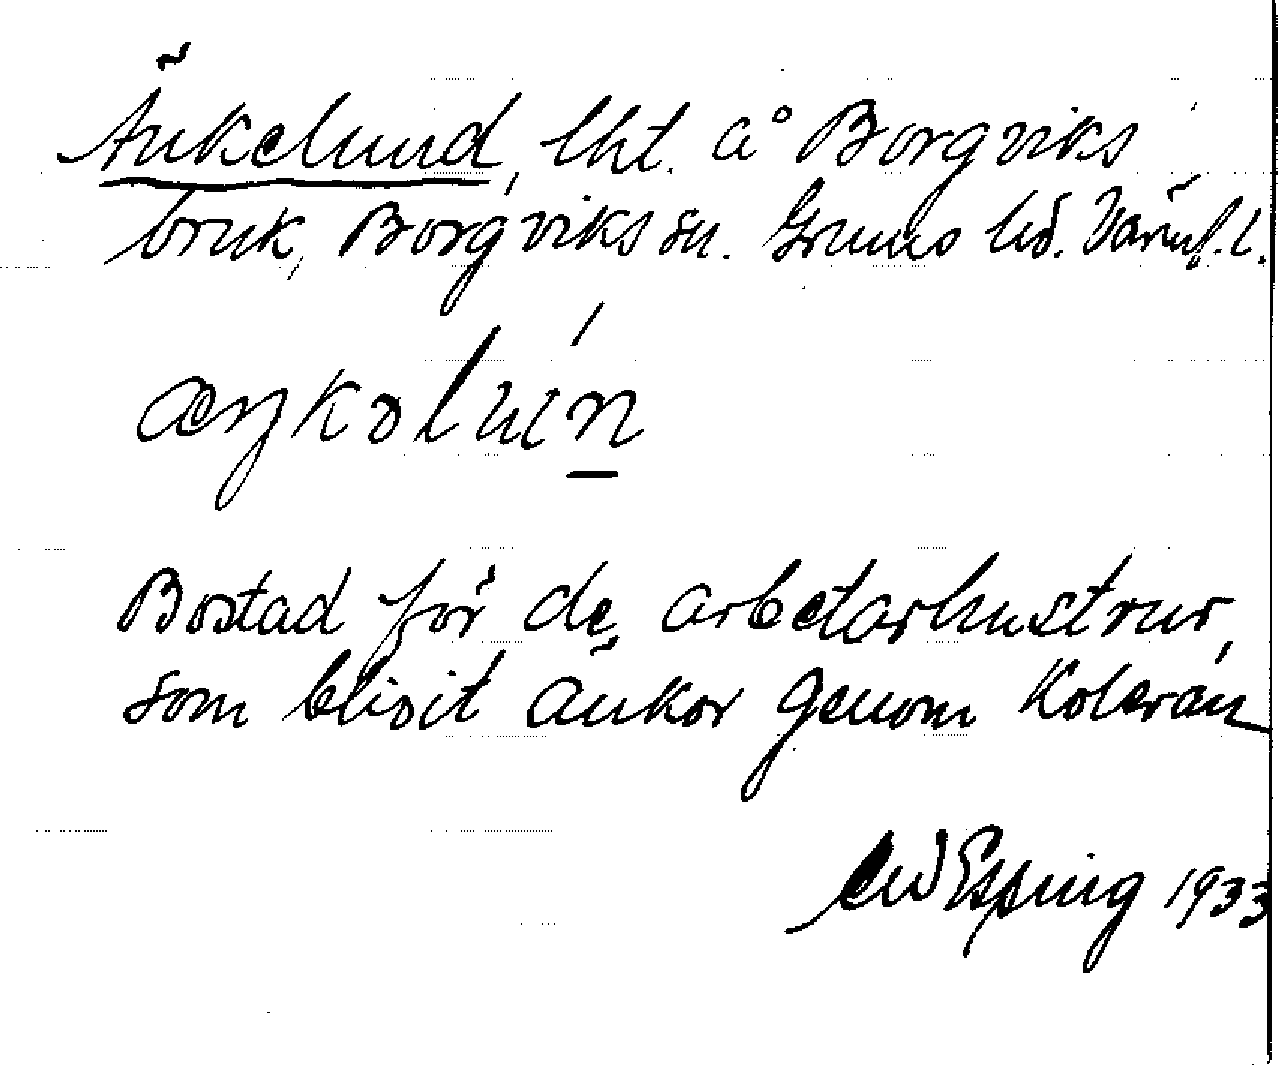 Änkelund, lht. å Borgviks
bruk, Borgviks sn. Grums hd. Värml. l.
æŋkəluń
Bostad för de arbetarhustrur,
som blivit änkor genom Koleran
Esping 1933